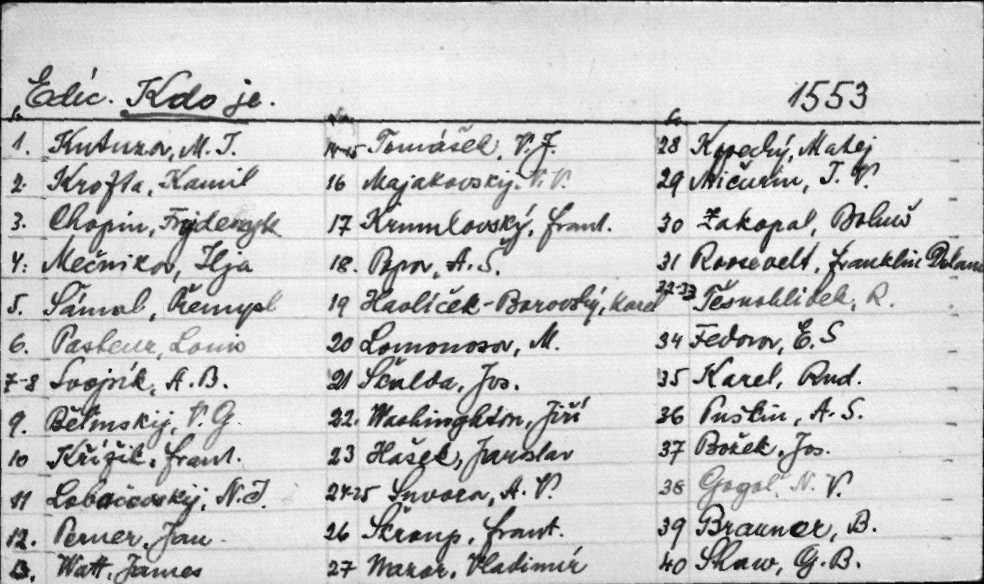 Edic. Kdo je. 1553
1. Kutuzov, M. I.
2. Krofta, Kamil
3. Chopin, Fryderyk
4. Mečnikov, Ilja
5. Šámal, Přemysl
6. Pasteur, Louis
7-8 Svojsík, A. B.
9. Bělinskij, V. G.
10 Křižík, Frant.
11 Lobačevskij, N. I.
12. Perner, Jan
13. Watt, James
14-15 Tomášek, V. J.
16 Majakovskij, V. V.
17 Krumlovský, Frant.
18. Popov, A. S.
19 Havlíček-Borovský, Karel
20 Lomonosov, M.
21 Škulda, Jos.
22. Washinghton, Jiří
23 Hašek, Jaroslav
24-25 Suvorov, A. V.
26 Škroup, Frant.
27 Vladimír
28 Kopecký, Matej
29 Mičurin, I. V.
30 Zakopal, Bohuš
31 Roosevelt, Franklin Delano
32-33 Těsnohlídek, R.
34 Fedorov, E. S
35 Karel, Rud.
36 Puškin, A. S.
37 Božek, Jos.
38 Gogol, N. V.
39 Brauner, B.
40 Shaw, G. B.